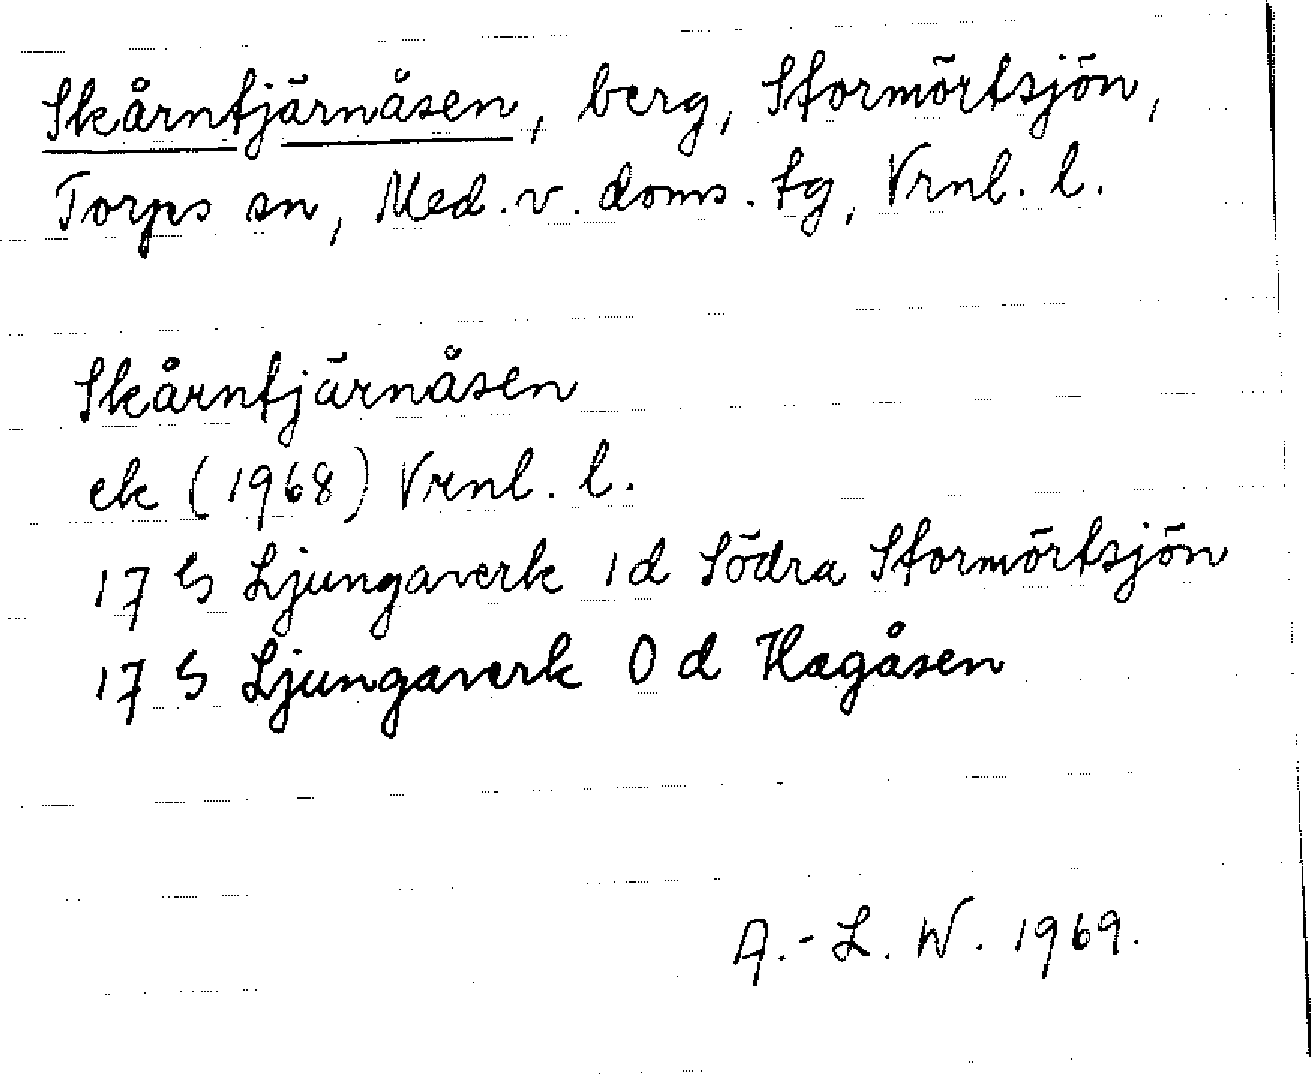 Skårntjärnåsen, berg, Stormörtsjön,
Torps sn, Med. v. doms. tg, Vrnl. l.
Skårntjärnåsen
ek (1968) Vrnl. l.
17 G Ljungaverk 1 d Södra Stormörtsjön
17 G Ljungaverk 0 d Hagåsen
A.-L. W. 1969.